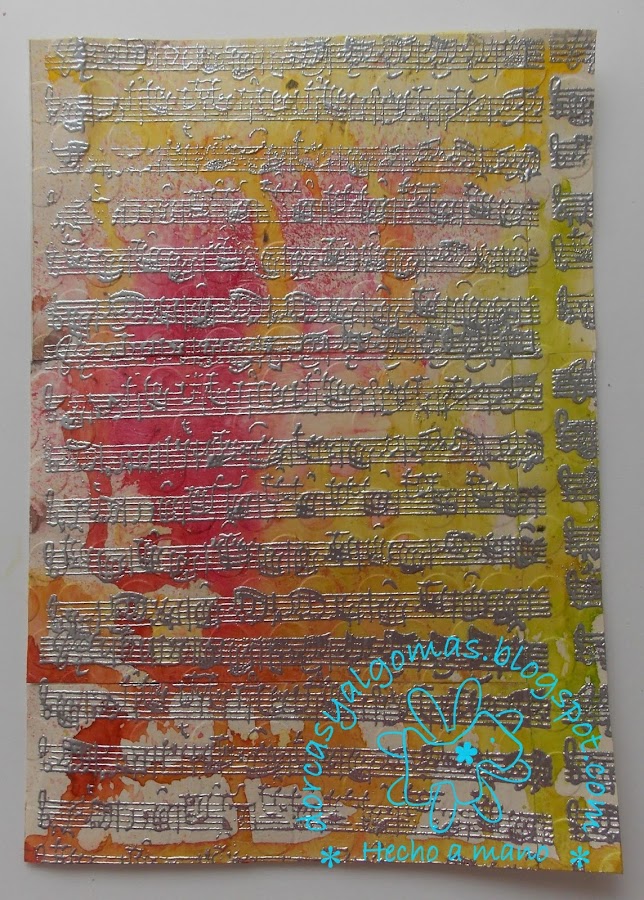 dorcasyalgomas.blogspot.com
* Hecho a mano *